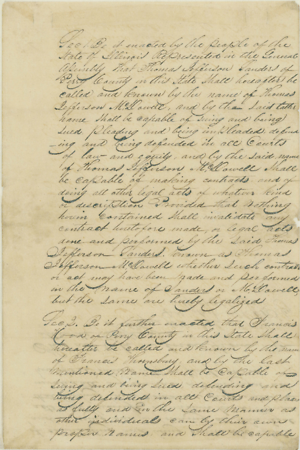 Sec 1 Be it enacted by the People of the
State of Illinois Represented in the General
Assembly That Thomas Jefferson Sanders of
County in this State Shall hereafter be
called and known by the name of Thomas
Jefferson and by the Said last
name Shall be capable of Suing and being
Sued Pleading and being impleaded defend
ing and being defended in all Courts
of law and equity and by the Said name
of Thomas Jefferson Shall
be Capable of making contracts and of
doing all other legal acts of whatever kind
or description Provided that nothing
herein Contained Shall invalidate any
contract heretofore made, or legal acts
done and performed by the Said Thomas
Jefferson Sanders, known as Thomas
Jefferson whether Such contracts
or acts may have been made and performed
in the name of Sanders or
but the Same are hereby legalized
Sec 2. Be it further enacted that Francis
of County in this State Shall
hereafter be called and known by the name
of Francis and by the last
mentioned name Shall be Capable of
Suing and being Sued defending and
being defended in all Courts and places
as fully and in the Same manner as
other individuals can by their own
proper names and Shall be capable